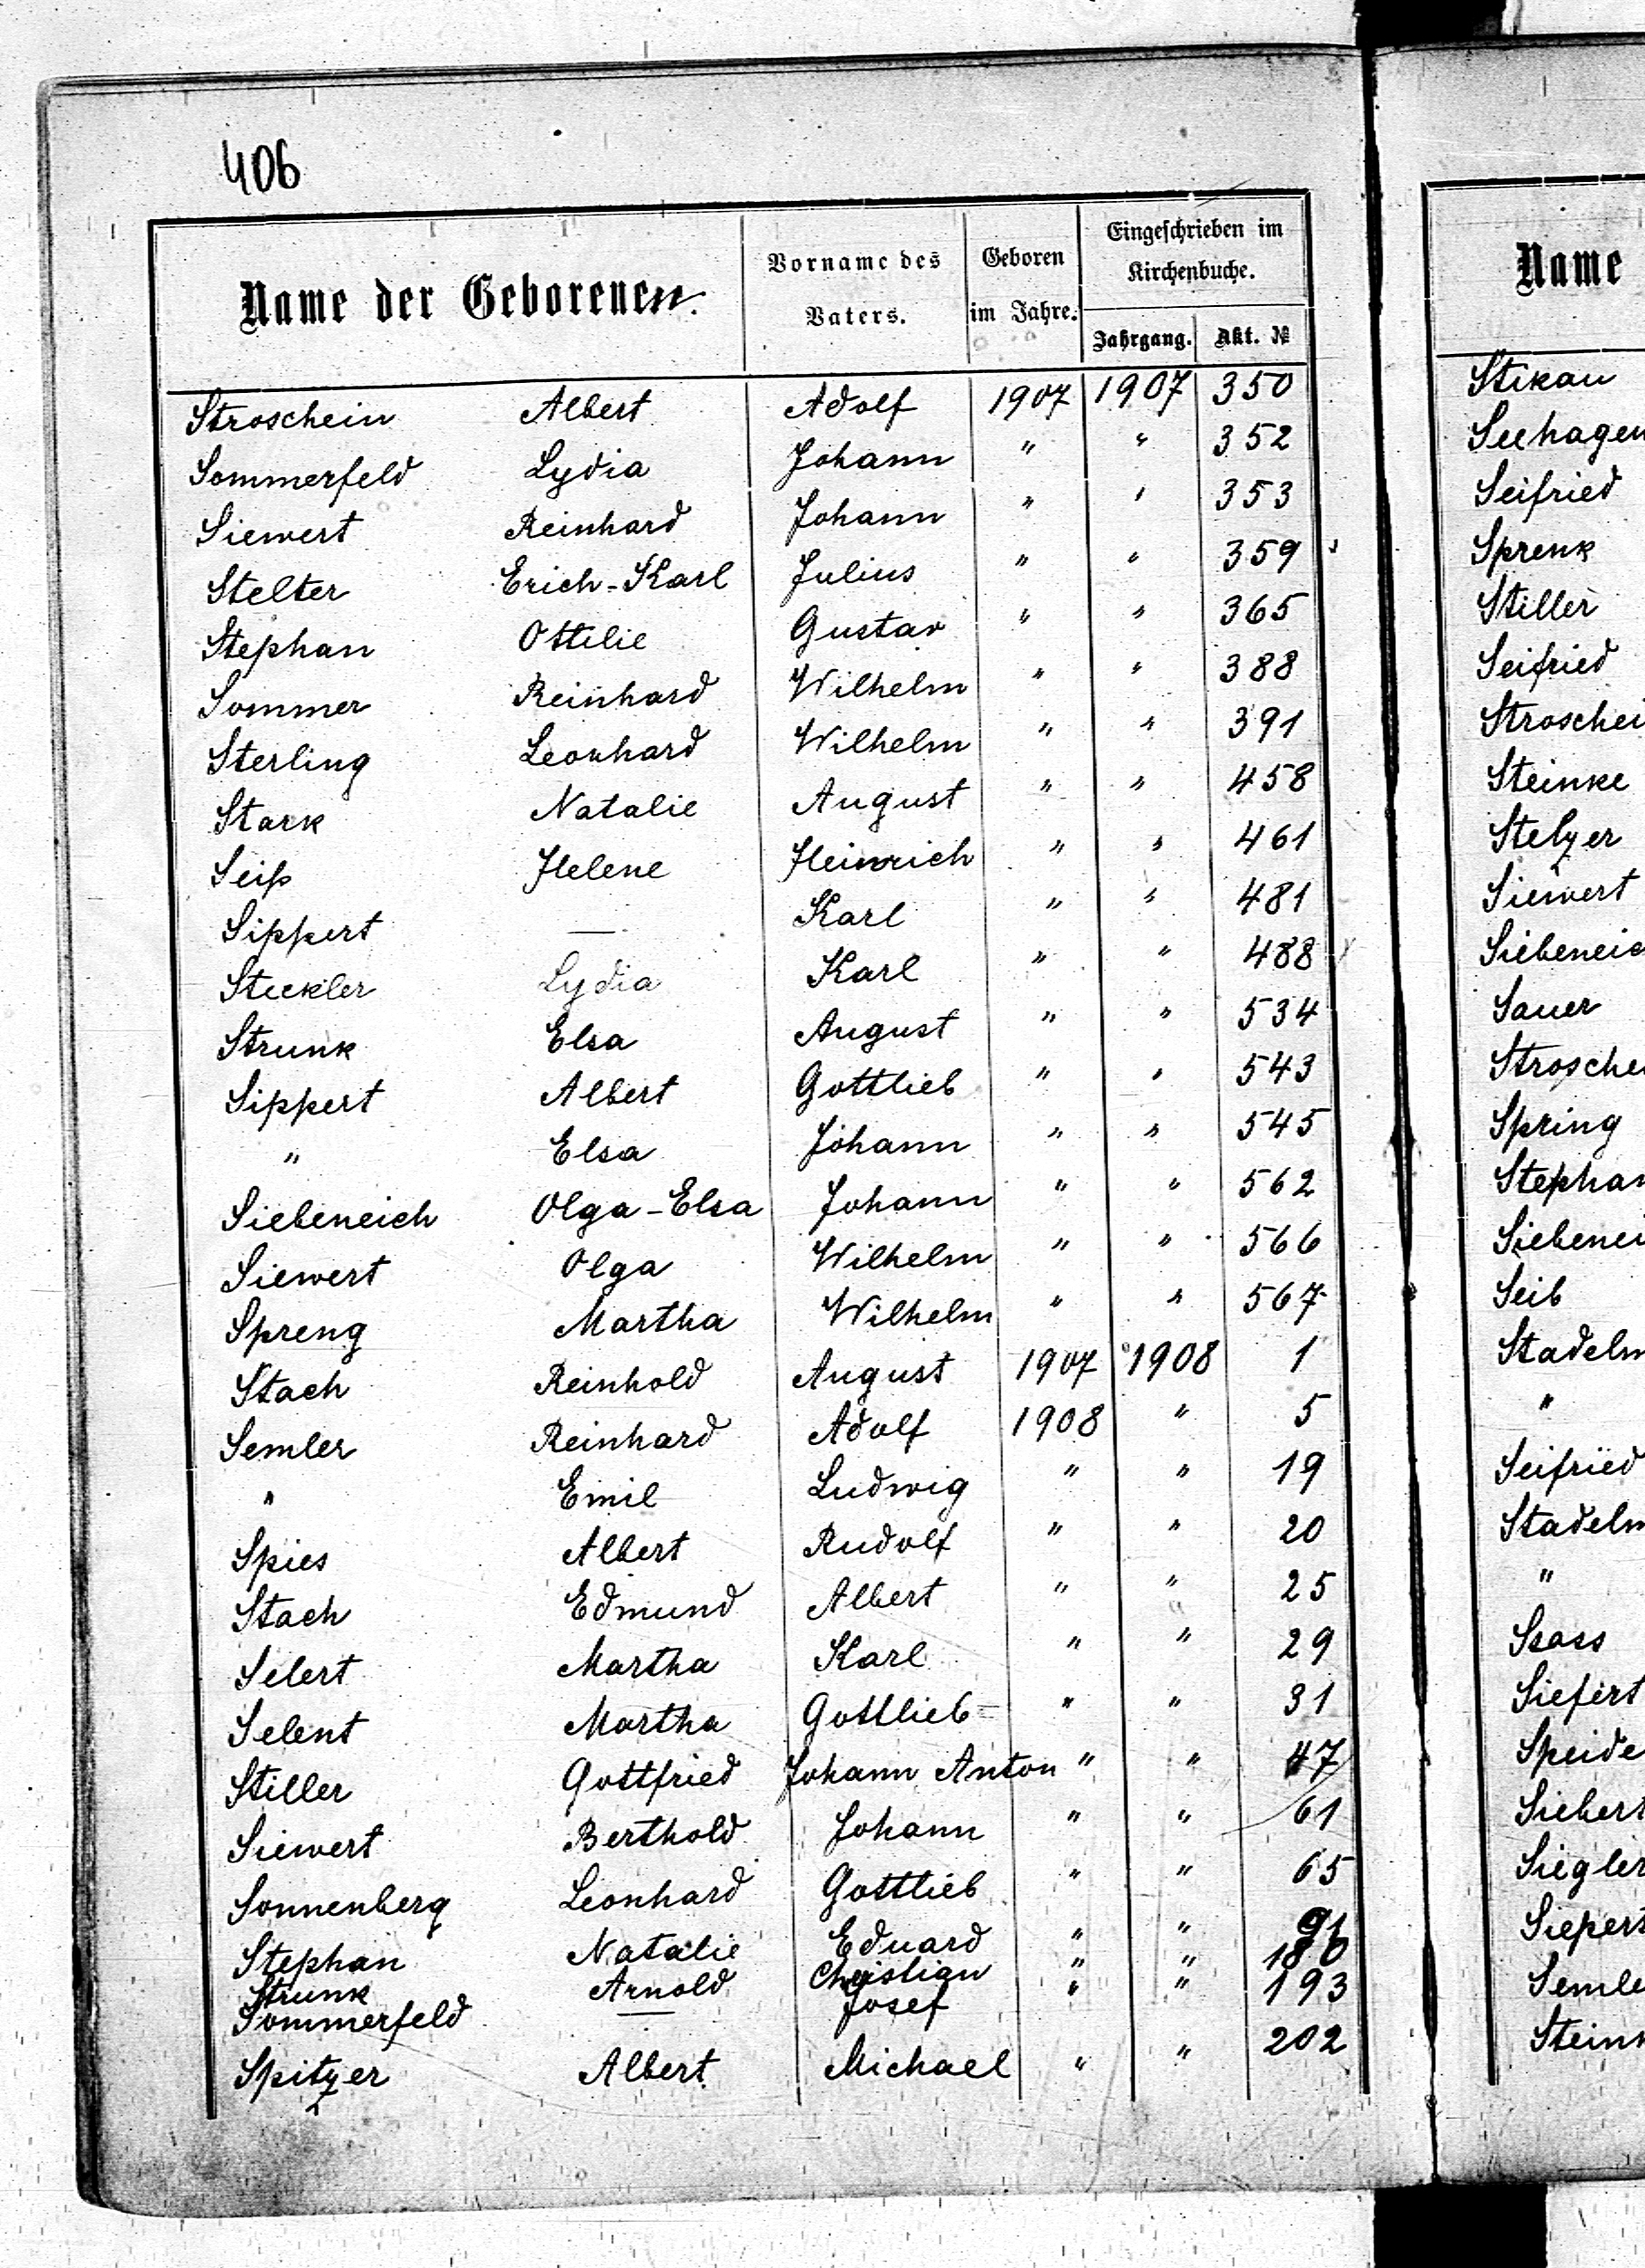 406
Name der Geborenen. Vorname des Vaters. Geboren im Jahre. Eingeschrieben im Kirchenbuche. Jahrgang. Akt. №
Stroschein Albert Adolf 1907 1907 350
Sommerfeld Lydia Johann " " 352
Siewert Reinhard Johann " " 353
Stelter Erich-Karl Julius " " 359
Stephan Ottilie Gustav " " 365
Sommer Reinhard Wilhelm " " 388
Sterling Leonhard Wilhelm " " 391
Stark Natalie August " " 458
Seiß Helene Heinrich " " 461
Sippert — Karl " " 481
Steckler Lydia Karl " " 488
Strunk Elsa August " " 534
Sippert Albert Gottlieb " " 543
" Elsa Johann " " 545
Siebeneich Olga-Elsa Johann " " 562
Siewert Olga Wilhelm " " 566
Spreng Martha Wilhelm " " 567
Stach Reinhold August 1907 1908 1
Semler Reinhard Adolf 1908 " 5
" Emil Ludwig " " 19
Spies Albert Rudolf " " 20
Stach Edmund Albert " " 25
Selert Martha Karl " " 29
Selent Martha Gottlieb " " 31
Stiller Gottfried Johann Anton " " 47
Siewert Berthold Johann " " 61
Sonnenberg Leonhard Gottlieb " " 65
Stephan Natalie Eduard " " 91
Strunk Arnold Christian " " 180
Sommerfeld — Josef " " 193
Spitzer Albert Michael " " 202
Name
Stikau
Seehagen
Seifried
Sprenk
Stiller
Seifried
Stroschei
Steinke
Stelzer
Siewert
Siebeneic
Sauer
Strosche
Spring
Stephan
Siebenei
Seib
Stadelm
"
Seifried
Stadelm
"
Ssass
Siefert
Speide
Siebert
Siegler
Siepert
Semle
Stein